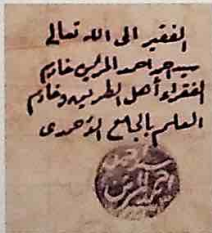 الفقير الى الله تعالى
سيد احمد المرسي خادم
الفقراء أهل الطريق وخادم
العلم بالجامع الأحمدى